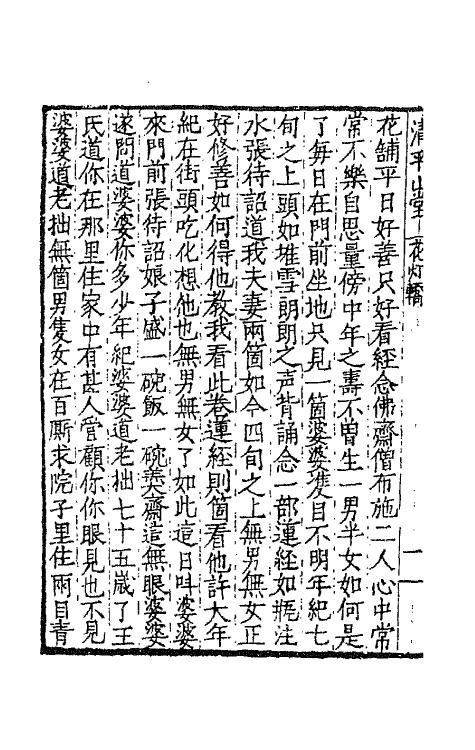 清平山堂 花灯轎 一
花舖平日好善只好看經念佛齋僧布施二人心中常
常不樂自思量傍中年之壽不曽生一男半女如何是
了每日在門前坐地只見一箇婆婆隻目不明年紀七
旬之上頭如堆雪朗朗之声背誦念一部蓮経如瓶注
水張待詔道我夫妻兩箇如今四旬之上無男無女正
好修善如何得他教我看此卷蓮经則箇看他許大年
紀在街頭吃化想他也無男無女了如此這日呌婆婆
來門前張待詔娘子盛一碗飯一碗羮齋這無眼婆婆
遂問道婆婆你多少年紀婆婆道老拙七十五歳了王
氏道你在那里住家中有甚人管顧你你眼見也不見
婆婆道老拙無箇男隻女在百厮求院子里住兩目青